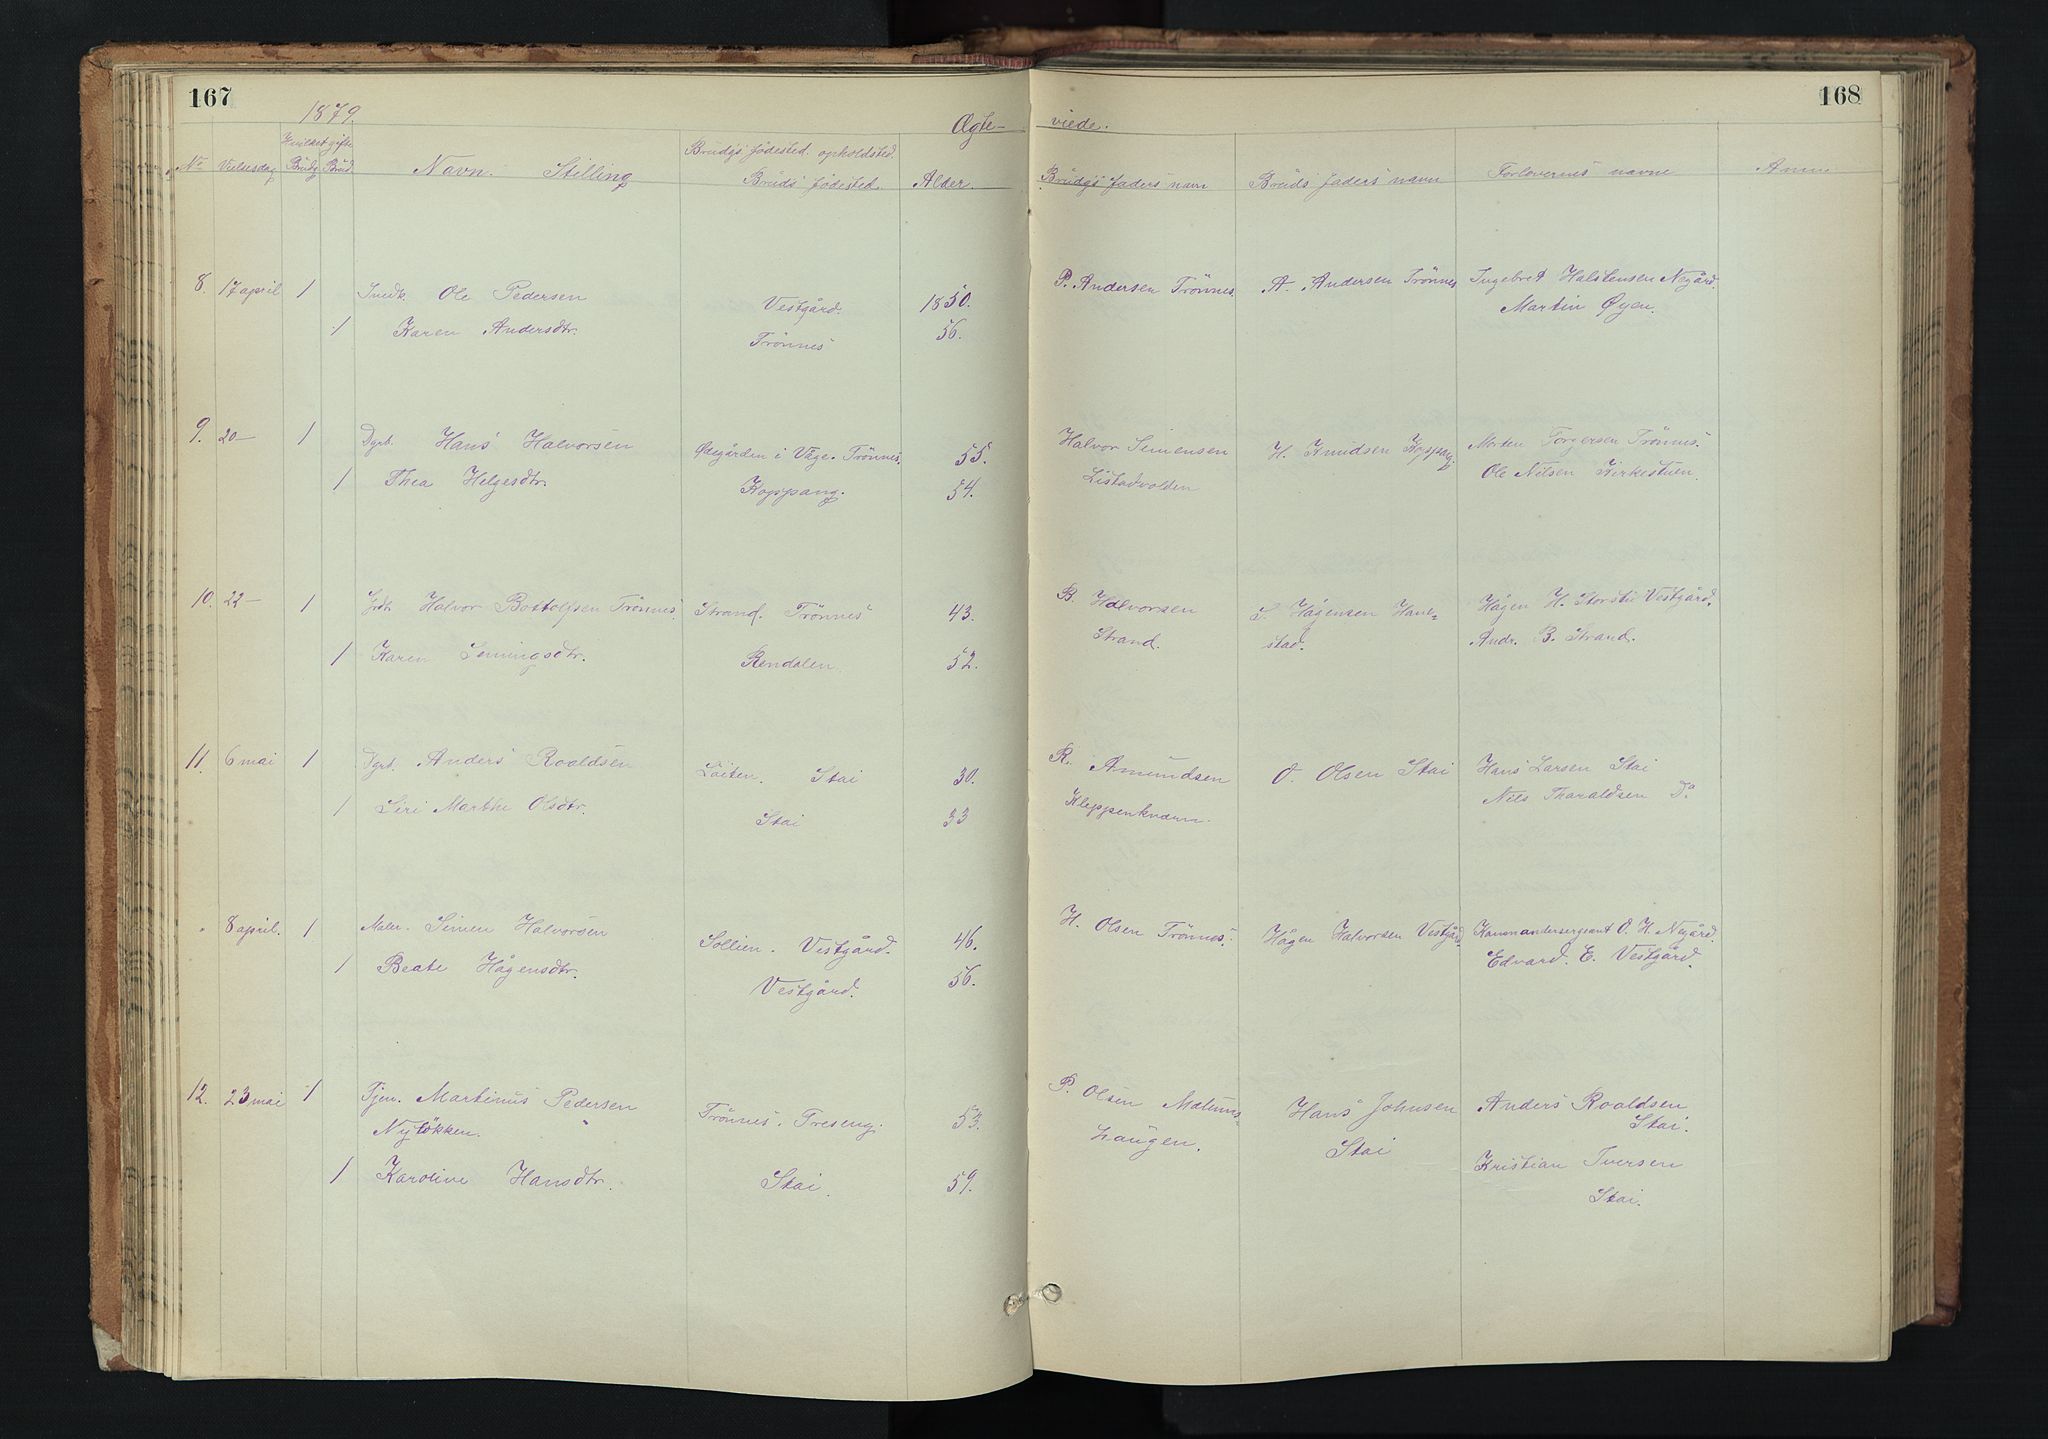 167
168
1879.
Ægte-
viede.
No Vielsesdag Hvilket gifte Brudg Brud Navn. Stilling Brudgs fødested. opholdsted. Bruds fødested. Alder
Brudgs faders navn Bruds faders navn Forlovernes navne Anm.
8. 17 april 1 Ole Pedersen Vestgård. 1850.
1 Karen Andersdtr. Trönnes 56.
P. Andersen Trönnes. A. Andersen Trönnes Ingebret Halstensen Negård.
Martin Øyen.
9. 20- 1 Dgrb. Hans Halvorsen Ødegården i Våge. Trönnes. 55.
1 Thea Helgesdtr. Koppang. 54.
Halvor Simensen H. Knudsen Koppang. Morten Torgersen Trönnes.
Listadvolden Ole Nilsen Kirkestuen.
10. 22- 1 Halvor Bottolfsen Trönnes. Strand. Trönnes 43.
1 Karen Simingsdtr. Rendalen. 52.
B. Halvorsen S. Hågensen Hane- Hågen H. Storstu Vestgård.
Strand. stad. Andr. B. Strand.
11. 6 mai 1 Dgrb. Anders Roaldsen Löiten. Stai 30.
1 Siri Marthe Olsdtr. Stai 33
R. Amundsen O. Olsen Stai Hans Larsen Stai
Kleppenhvam. Nils Tharaldsen Do.
" 8 april. 1 Maler. Simen Halvorsen Sollien. Vestgård. 46.
1 Beate Hågensdtr. Vestgård. 56.
H. Olsen Trönnes. Hågen Halvorsen Vestgård. Kommandersergeant O. H. Negård.
Edvard. E. Vestgård.
12. 23 mai 1 Tjen. Martinus Pedersen Trönnes. Treseng. 53.
Nylökken.
1 Karoline Hansdtr. Stai. 59.
P. Olsen Hans Johnsen Anders Roaldsen
haugen. Stai Stai.
Kristian Iversen
Stai.